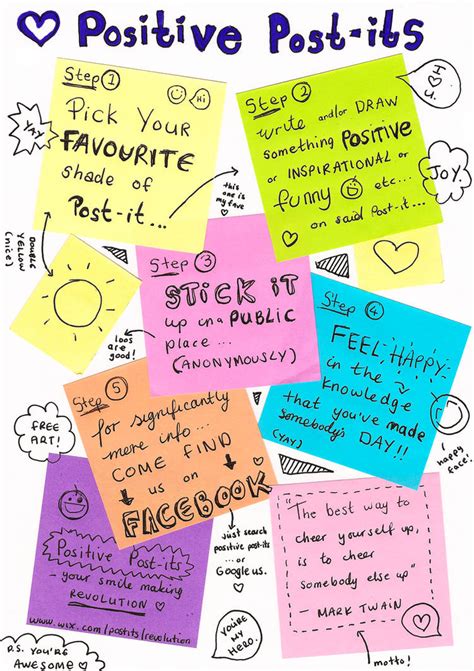 Positive Post-its
Step 1
Hi
Pick Your
FAVOURITE
shade of
Post-it...
YAY
this one
is my fave
DOUBLE
YELLOW
(nice)
Step 2
write and/or DRAW
something POSITIVE
or INSPIRATIONAL or
funny etc...
on said Post-it...
Hi!
JOY.
Step 3
STICK IT
up in a PUBLIC
place...
(ANONYMOUSLY)
loos are
good!
Step 4
FEEL HAPPY
in the
knowledge
that you've made
somebody's
DAY!!
(YAY)
happy
face!
Step 5
for significantly
more info...
COME FIND
us on
FACEBOOK
FREE
ART!
just search
positive post-its
... or
Google us.
Positive Post-its
- your smile making
REVOLUTION
www.wix.com/postits/revolution
"The best way to
cheer yourself up,
is to cheer
somebody else up"
- MARK TWAIN
YOU'RE
MY
HERO.
motto!
P.S. YOU'RE
AWESOME